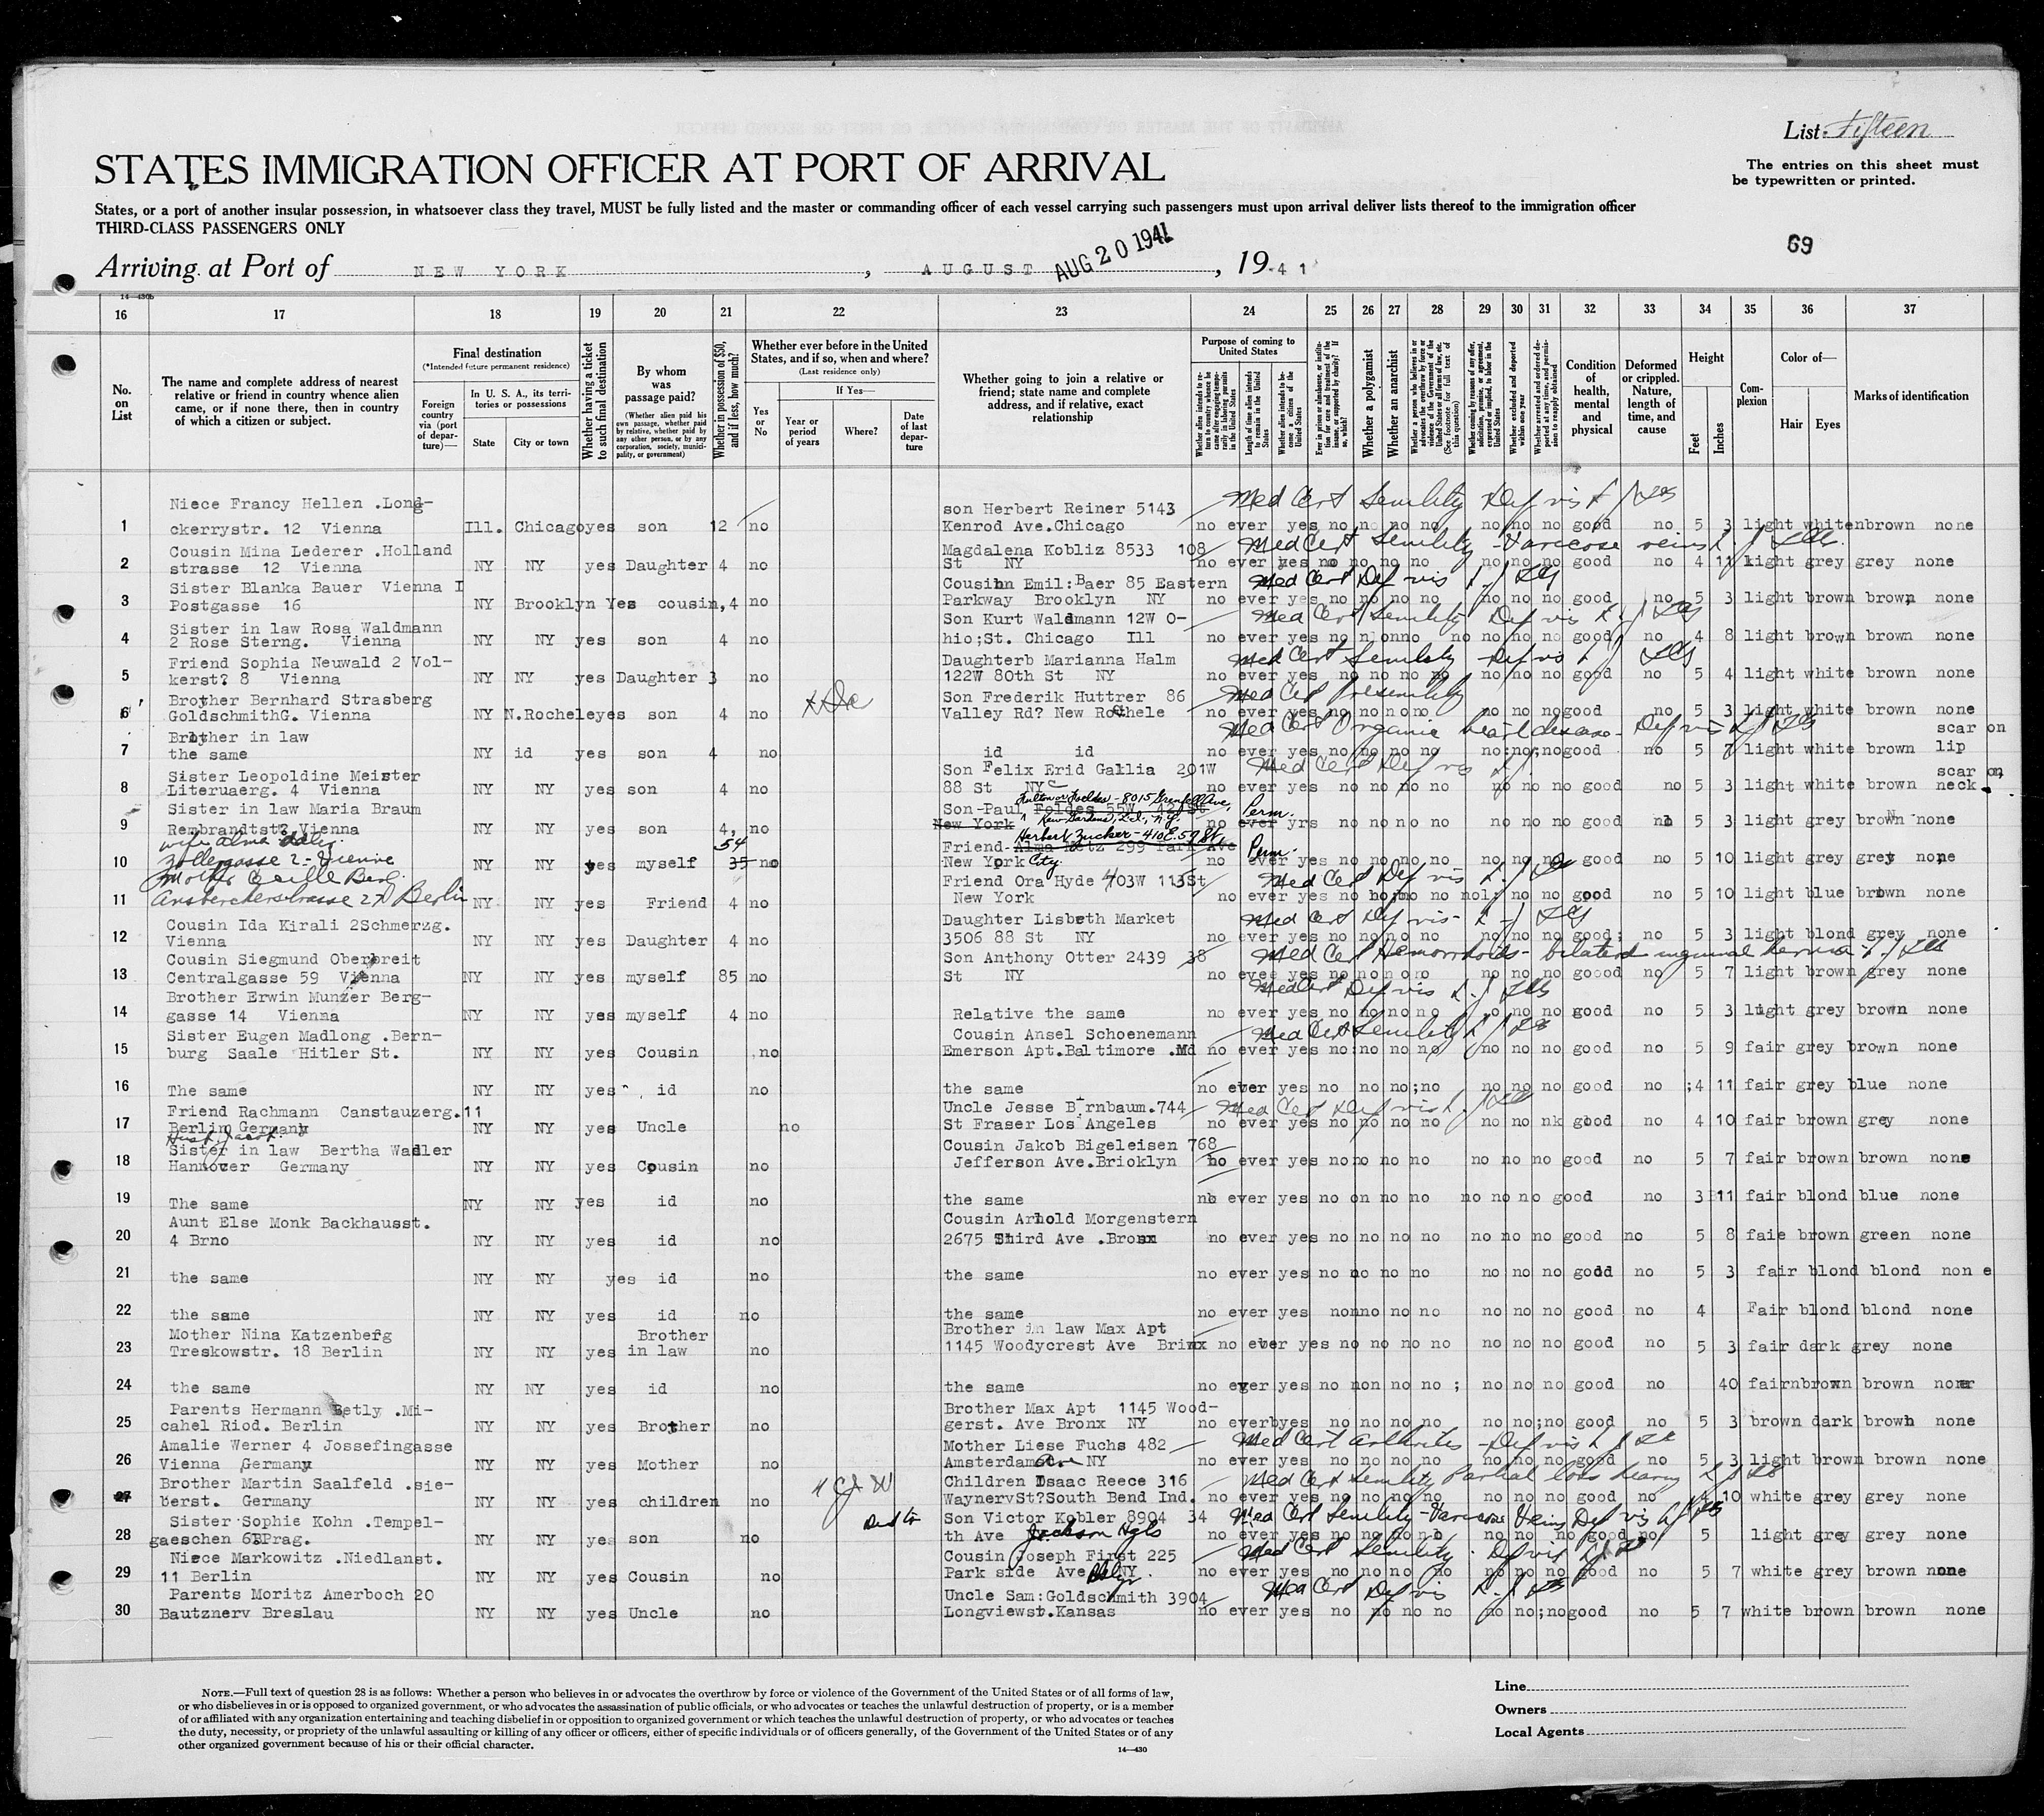 List Fifteen
STATES IMMIGRATION OFFICER AT PORT OF ARRIVAL
The entries on this sheet must
be typewritten or printed.
States, or a port of another insular possession, in whatsoever class they travel, MUST be fully listed and the master or commanding officer of each vessel carrying such passengers must upon arrival deliver lists thereof to the immigration officer
THIRD-CLASS PASSENGERS ONLY
69
Arriving at Port of NEW YORK, AUGUST AUG 20 1941, 19 41
14—430b
16 17 18 19 20 21 22 23 24 25 26 27 28 29 30 31 32 33 34 35 36 37
No. on List
The name and complete address of nearest relative or friend in country whence alien came, or if none there, then in country of which a citizen or subject.
Final destination
(*Intended future permanent residence)
Foreign country via (port of departure)—
In U. S. A., its territories or possessions
State City or town
Whether having a ticket to such final destination
By whom was passage paid?
(Whether alien paid his own passage, whether paid by relative, whether paid by any other person, or by any corporation, society, municipality, or government)
Whether in possession of $50, and if less, how much?
Whether ever before in the United States, and if so, when and where?
(Last residence only)
Yes or No
If Yes—
Year or period of years Where? Date of last departure
Whether going to join a relative or friend; state name and complete address, and if relative, exact relationship
Purpose of coming to United States
Whether a polygamist
Whether an anarchist
Condition of health, mental and physical
Deformed or crippled. Nature, length of time, and cause
Height
Feet Inches
Complexion
Color of—
Hair Eyes
Marks of identification
Niece Francy Hellen .Long- son Herbert Reiner 5143 Med Cert Senility Def vis
1 ckerrystr. 12 Vienna Ill. Chicago yes son 12 no Kenrod Ave.Chicago no ever yes no no no no no no no good no 5 3 light whiten brown none
Cousin Mina Lederer .Holland Magdalena Kobliz 8533 108 Med Cert Senility - Varicose veins
2 strasse 12 Vienna NY NY yes Daughter 4 no St NY no ever yes no no no no no no no good no 4 11 light grey grey none
Sister Blanka Bauer Vienna I Cousinn Emil:Baer 85 Eastern Med Cert Def vis
3 Postgasse 16 NY Brooklyn Yes cousin, 4 no Parkway Brooklyn NY no ever yes no no no no no no no good no 5 3 light brown brown none
Sister in law Rosa Waldmann Son Kurt Waldmann 12W O- Med Cert Senility Def vis
4 2 Rose Sterng. Vienna NY NY yes son 4 no hio;St. Chicago Ill no ever yes no n onno no no no no good no 4 8 light brown brown none
Friend Sophia Neuwald 2 Vol- Daughterb Marianna Halm Med Cert Senility - Def vis
5 kerst? 8 Vienna NY NY yes Daughter 3 no 122W 80th St NY no ever yes no no no no no no no good no 5 4 light white brown none
Brother Bernhard Strasberg Son Frederik Huttrer 86 Med Cert Presenility
6 GoldschmithG. Vienna NY N.Rochele yes son 4 no Valley Rd? New Rochele no ever yes no no no no no no no good no 5 3 light white brown none
Brother in law Med Cert Organic heart disease - Def vis scar on
7 the same NY id yes son 4 no id id no ever yes no no no no no:no;no good no 5 7 light white brown lip
Sister Leopoldine Meister Son Felix Erid Gallia 201W Med Cert Def vis scar on
8 Lituruaerg. 4 Vienna NY NY yes son 4 no 88 St NYC no ever yes no no no no no no no good no 5 3 light white brown neck
Sister in law Maria Braum Son-Paul Foldes 55W. 42 St Fulton or Foeldes - 8015 Grenfell Ave, Kew Gardens, L.I., N.Y. Perm.
9 Rembrandtst? Vienna NY NY yes son 4, no New York no ever yrs no no no no no no no good no 5 3 light grey brown none
wife Alma Adler 54 Friend-Alma Metz 299 Park Ave Herbert Zucker - 410 E. 57 St, Perm.
10 Zollergasse 2 - Vienna NY NY yes myself 35 no New York City no ever yes no no no no no no no good no 5 10 light grey grey none
Mother Cecille Berl. Friend Ora Hyde 403W 113St Med Cert Def vis
11 Ansbacherstrasse 27 Berlin NY NY yes Friend 4 no New York no ever yes no no no no no no no good no 5 10 light blue brown none
Cousin Ida Kirali 2Schmerzg. Daughter Lisbeth Market Med Cert Def vis
12 Vienna NY NY yes Daughter 4 no 3506 88 St NY no ever yes no no no no no no no good; no 5 3 light blond grey none
Cousin Siegmund Oberbreit Son Anthony Otter 2439 38 Med Cert Hemorrhoids - bilateral inguinal hernia
13 Centralgasse 59 Vienna NY NY yes myself 85 no St NY no evee yes no no n o no no no no goood no 5 7 light brown grey none
Brother Erwin Munzer Berg- Med Cert Def vis
14 gasse 14 Vienna NY NY yes myself 4 no Relative the same no ever yes no no no no no no no good no 5 3 light grey brown none
Sister Eugen Madlong .Bern- Cousin Ansel Schoenemann Med Cert Senility
15 burg Saale Hitler St. NY NY yes Cousin no Emerson Apt.Baltimore .Md no ever yes no:no no no no no no good no 5 9 fair grey brown none
16 The same NY NY yes id no the same no ever yes no no no;no no no no good no ;4 11 fair grey blue none
Friend Rachmann Canstauzerg.11 Uncle Jesse Birnbaum.744 Med Cert Def vis
17 Berlin Germany NY NY yes Uncle no St Fraser Los Angeles no ever yes no no no no no no nk good no 4 10 fair brown grey none
Husb. Jacob.
Sister in law Bertha Wadler Cousin Jakob Bigeleisen 768
18 Hannover Germany NY NY yes Cousin no Jefferson Ave.Briooklyn no ever yes no no no no no no no good no 5 7 fair brown brown none
19 The same NY NY yes id no the same no ever yes no on no no no no no good no 3 11 fair blond blue none
Aunt Else Monk Backhausst. Cousin Arnold Morgenstern
20 4 Brno NY NY yes id no 2675 Third Ave .Bronx no ever yes no no no no no no no good no 5 8 faie brown green none
21 the same NY NY yes id no the same no ever yes no no no no no no no good no 5 3 fair blond blond non e
22 the same NY NY yes id no the same no ever yes nonno no no no no no good no 4 Fair blond blond none
Mother Nina Katzenberg Brother Brother in law Max Apt
23 Treskowstr. 18 Berlin NY NY yes in law no 1145 Woodycrest Ave Brinx no ever yes no no no no no no no good no 5 3 fair dark grey none
24 the same NY NY yes id no the same no ever yes no non no no ; no no no good no 40 fairnbrown brown none
Parents Hermann Betly .Mi- Brother Max Apt 1145 Wood-
25 cahel Riod. Berlin NY NY yes Brother no gerst. Ave Bronx NY no everbyes no no no no no no;no good no 5 3 brown dark brown none
Amalie Werner 4 Jossefingasse Mother Liese Fuchs 482 Med Cert Arthritis - Def vis
26 Vienna Germany NY NY yes Mother no Amsterdam Ave NY no ever yes no no no no no no no good no 5 3 light brown brown none
Brother Martin Saalfeld .sie- Children Isaac Reece 316 Med Cert Senility Partial loss hearing
27 berst. Germany NY NY yes children no WaynervSt?South Bend Ind. no ever yes no no no no no no no good no 4 10 white grey grey none
Sister Sophie Kohn .Tempel- Son Victor Kobler 8904 34 Med Cert Senility - Varicose Veins Def vis
28 gaeschen 6BPrag. NY NY yes son no th Ave Jackson Hgts no ever yes no no no no no no no good no 5 light grey grey none
Niece Markowitz .Niedlanst. Cousin Joseph First 225 Med Cert Senility - Def vis
29 11 Berlin NY NY yes Cousin no Park side Ave Bklyn NY. no ever yes no no no no no no no good no 5 7 white grey brown none
Parents Moritz Amerboch 20 Uncle Sam:Goldschmith 3904 Med Cert Def vis
30 Bautznerv Breslau NY NY yes Uncle no Longviewst.Kansas no ever yes no no no no no no;no good no 5 7 white brown brown none
NOTE.—Full text of question 28 is as follows: Whether a person who believes in or advocates the overthrow by force or violence of the Government of the United States or of all forms of law,
or who disbelieves in or is opposed to organized government, or who advocates the assassination of public officials, or who advocates or teaches the unlawful destruction of property, or is a member
of or affiliated with any organization entertaining and teaching disbelief in or opposition to organized government or which teaches the unlawful destruction of property, or who advocates or teaches
the duty, necessity, or propriety of the unlawful assaulting or killing of any officer or officers, either of specific individuals or of officers generally, of the Government of the United States or of any
other organized government because of his or their official character.
14—430
Line
Owners
Local Agents